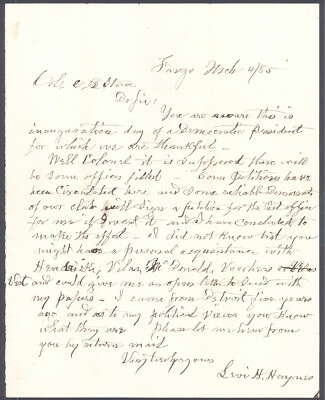 Fargo Mch 4/85
Col. C. B. Stone
Dr Sir,
You are aware this is
inauguration day of a Democratic President
for which we are thankful -
Well Colonel it is supposed there will
be some offices filled - Some Petitions have
been Circulated here and Some reliable Democrats
of our club will Sign a petition for the Post office
for me if I want it and I have Concluded to
make the effort - I did not know but you
might have a personal acquaintance with
Hendricks, Vilas, McDonald, Voorhees
Vest and could give me an open letter to Send with
my papers - I came from Detroit five years
ago and as to my political views you Know
what they are Please let me hear from
you by return mail
Very truly yours
Levi H. Haynes